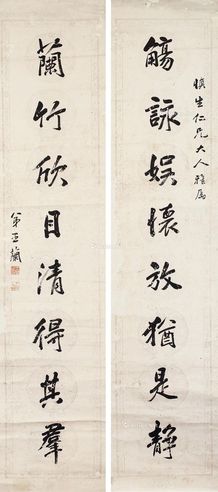 慎生仁兄大人雅属
觞詠娱懷放猶是静
蘭竹欣目清得其羣
弟亚蘭